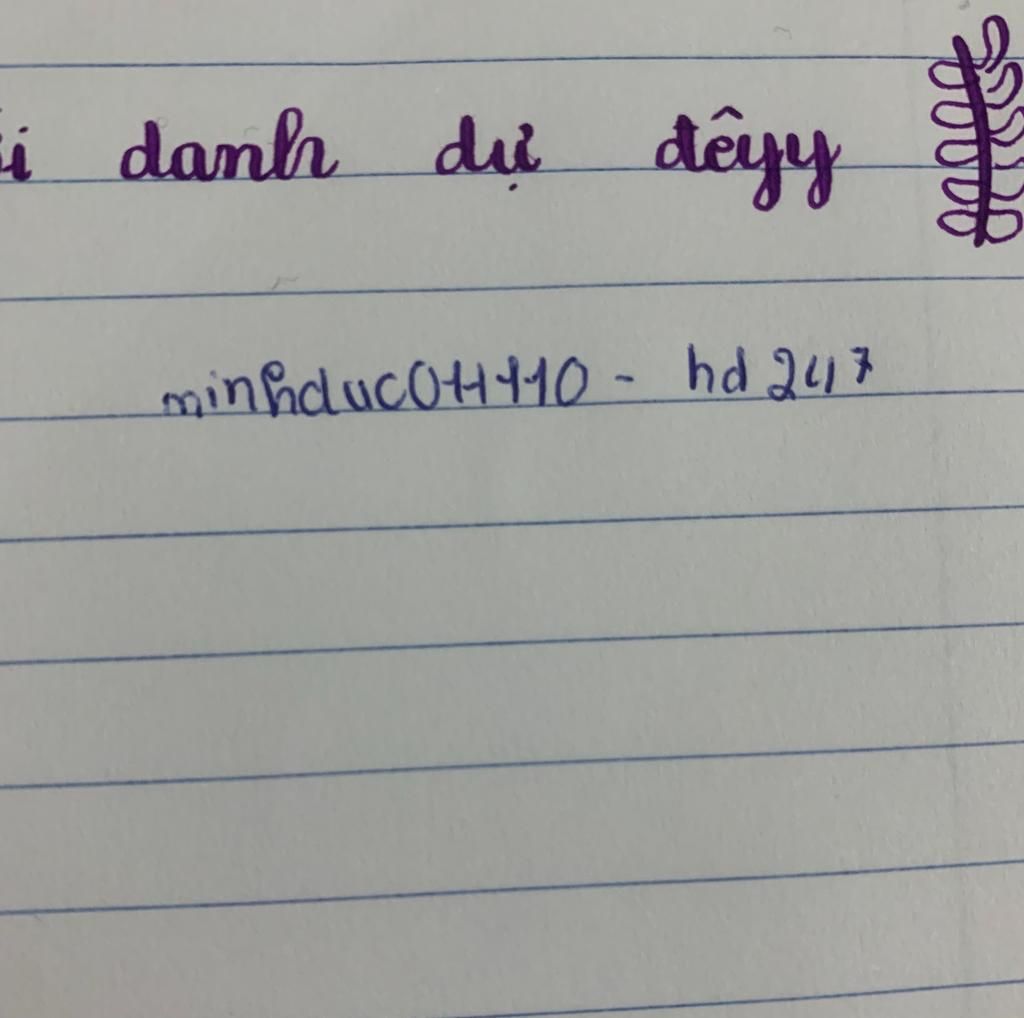 danh dự đêyy
minhduc011110 - hd247